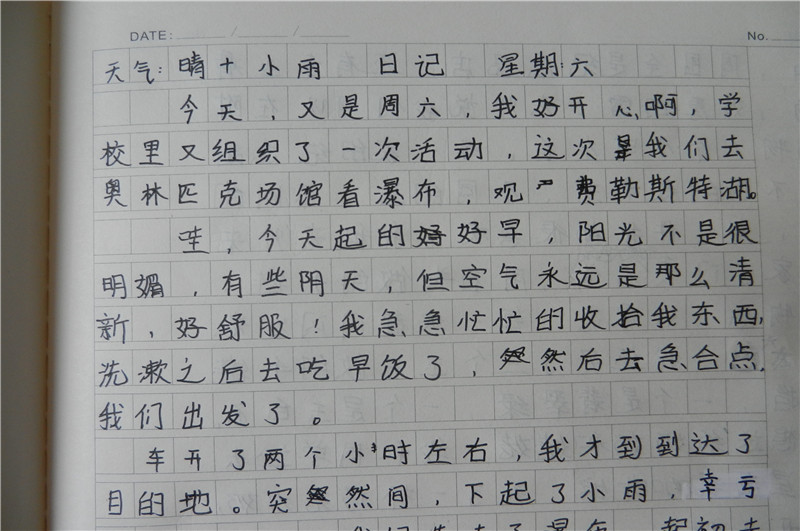 DATE: / / No.
天气:晴+小雨 日记 星期:六
今天,又是周六,我好开心啊,学
校里又组织了一次活动,这次是我们去
奥林匹克场馆看瀑布,观产费勒斯特湖。
哇,今天起的好早,阳光不是很
明媚,有些阴天,但空气永远是那么清
新,好舒服!我急急忙忙的收拾我东西,
洗漱之后去吃早饭了,然后去急合点,
我们出发了。
车开了两个小时左右,我才到到达了
目的地。突然间,下起了小雨,幸亏